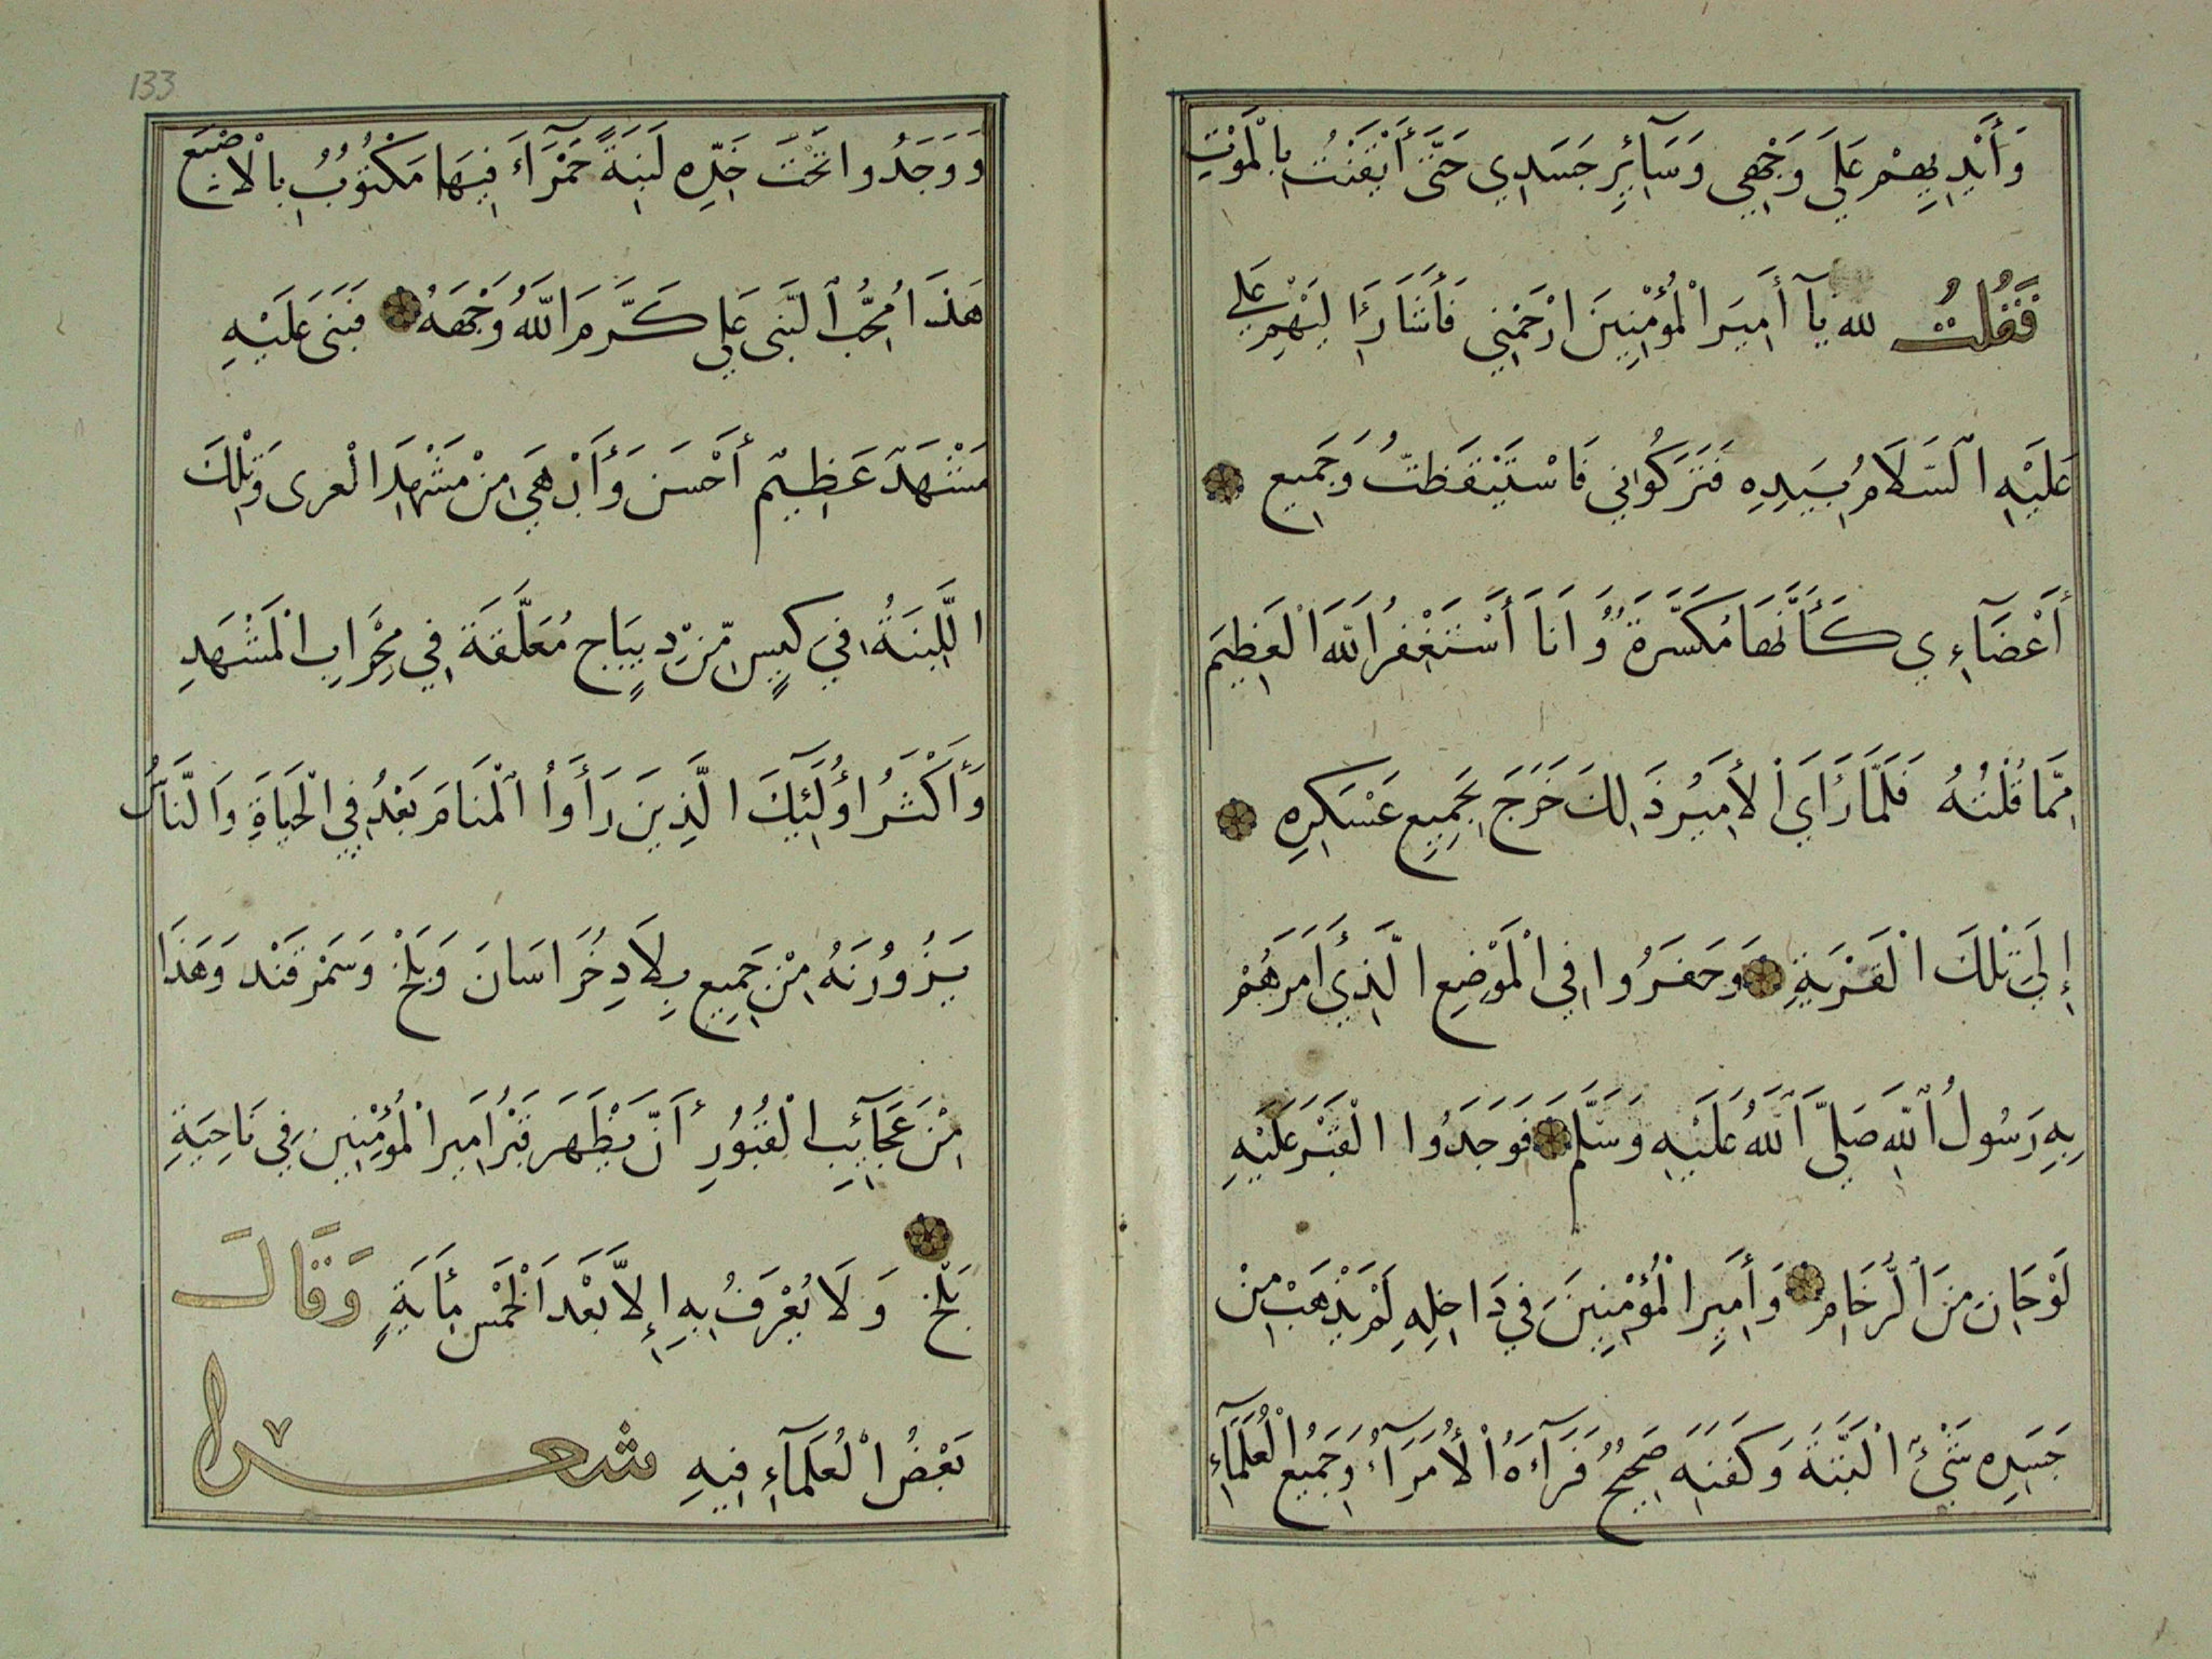 وَأَيْدِيهِمْ عَلَى وَجْهِي وَسَآئِرِ جَسَدِي حَتَّى أَيْقَنْتُ بِالْمَوْتِ
فَقُلْتُ لله يَآ أَمِيرَ الْمُؤْمِنِينَ ارْحَمْنِي فَأَشَارَ إِلَيْهِمْ عَلِي
عَلَيْهِ السَّلَامُ بِيَدِهِ فَتَرَكُوانِي فَاسْتَيْقَظْتُ وَجَمِيع
أَعْضَآءِي كَأَنَّهَا مُكَسَّرَةٌ وَانَا أَسْتَغْفِرُ اللهَ الْعَظِيمَ
مِمَّا قُلْتُهُ فَلَمَّا رَأَيَ الْأَمِيرُ ذَلِكَ خَرَجَ بِجَمِيعِ عَسْكَرِهِ
إِلَى تِلْكَ الْقَرْيَةِ وَحَفَرُوا فِي الْمَوْضِعِ الَّذِي أَمَرَهُمْ
بِهِ رَسُولُ اللهِ صَلَّى اللهُ عَلَيْهِ وَسَلَّم فَوَجَدُوا الْقَبْرَ عَلَيْهِ
لَوْحَانِ مِنَ الرُّخَامِ وَأَمِيرِ الْمُؤْمِنِينَ فِي دَاخِلِهِ لَمْ يَذْهَبْ مِنْ
جَسَدِهِ شَيْءٌ الْبَتَّةَ وَكَفَنِهِ صَحِيحٌ فَرَآءَهُ الْأُمَرَآءُ وَجَمِيعُ الْعُلَمَآءِ
133
وَوَجَدُوا تَحْتَ خَدِّهِ لَبِنَةً حَمْرَآءَ فِيهَا مَكْتُوبٌ بِالْاصْبَعِ
هَذَا مُحِبُّ النَّبِى عَلِي كَرَّمَ اللهُ وَجْهَهُ فَبَنَى عَلَيْهِ
مَشْهَدٌ عَظِيمٌ أَحْسَنَ وَأَبْهَى مِنْ مَشْهَدِ الْغرى وَتِلْكَ
اللَّبِنَةُ فِي كِيسٍ مِّنْ دِيبَاجٍ مُعَلَّقَةٌ فِي مِحْرَابِ الْمَشْهَدِ
وَأَكْثَرُ اوُلَئِكَ الَّذِينَ رَأَوُا الْمَنَامَ بَعْدُ فِي الْحَيَاةِ وَالنَّاسُ
يَزُورُنَهُ مِنْ جَمِيعِ بِلَادِ خُرَاسَانَ وَبَلْخْ وَسَمَرْقَنْد وَهَذَا
مِنْ عَجَآئِبِ الْقُبُورِ أَنَّ يَظْهَرَ قَبْرُ امَيرَ الْمُؤْمِنِين فِي نَاحِيَةِ
بَلْخْ وَلَا يُعْرَفُ بِهِ إِلَّا بَعْدَ الْخَمْسِ مِأَيَةٍ وَقَالَ
بَعْضُ الْعُلَمَآءِ فِيهِ شعرا